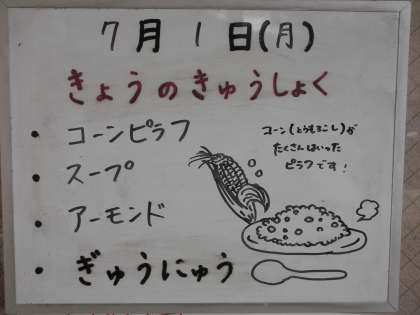 7月1日(月)
きょうのきゅうしょく
・コーンピラフ
・スープ
・アーモンド
・ぎゅうにゅう
コーン(とうもろこし)が
たくさんはいった
ピラフです!